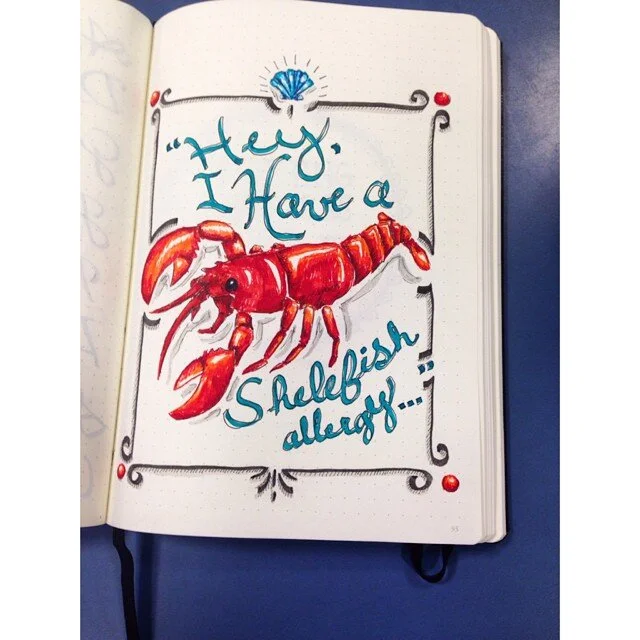 "Hey,
I Have a
Shelefish
allergy..."